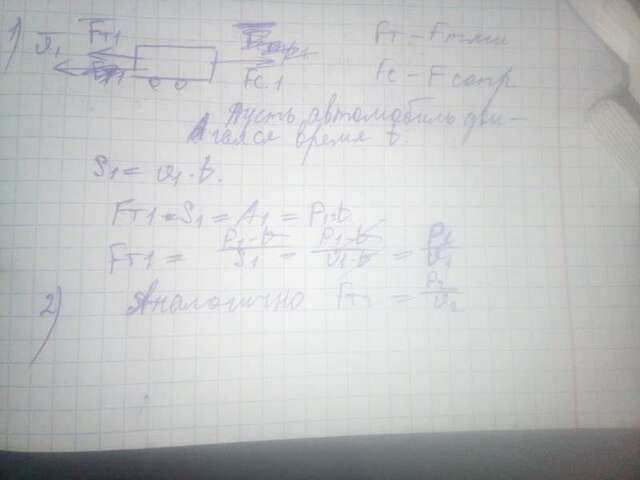 1) υ1 Fт1 Fт – Fтяги
Fс1 Fс – Fсопр
Пусть автомобиль дви-
гался время t.
S1 = υ1·t.
Fт1·S1 = A1 = P1·t
Fт1 = P1·t/S1 = P1·t/υ1·t = P1/υ1
2) Аналогично Fт2 = P2/υ2